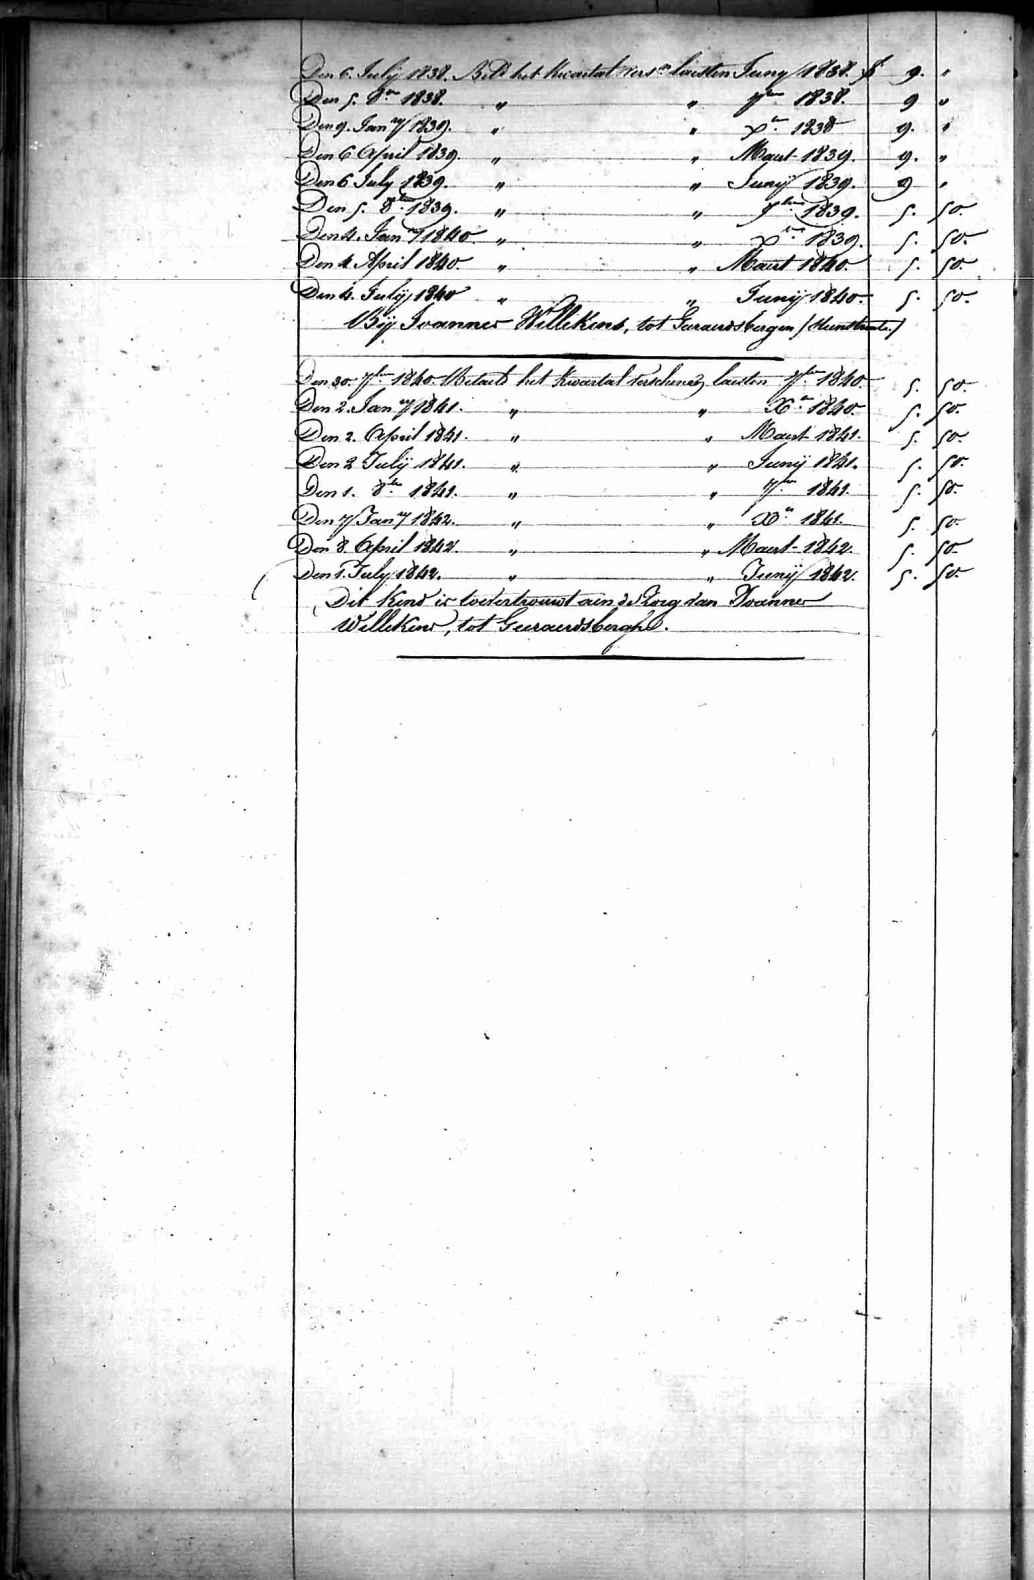 Den 6. Julij 1838. Betd het Kwartal versn laesten Junij 1838. f 9. "
Den 5. 8er 1838. " " 7ber 1838. 9 "
Den 9. Janry 1839. " " Xr 1838 9. "
Den 6 April 1839. " " Maert 1839. 9. "
Den 6 July 1839. " " Junij 1839. 9 "
Den 5. 8bre 1839. " " 7bre 1839. 5. 50.
Den 4. Janry 1840. " " Xbre 1839. 5. 50.
Den 4 April 1840. " " Maert 1840. 5. 50.
Den 4. Julij 1840 " " Junij 1840. 5. 50.
Bij Joannes Willekens, tot Geraerdsbergen
Den 30. 7ber 1840. Betaelt het Kwartal verschenen laesten 7ber 1840. 5. 50.
Den 2. Janry 1841. " " Xer 1840. 5. 50.
Den 2. April 1841. " " Maert 1841. 5. 50.
Den 2 Julij 1841. " " Junij 1841. 5. 50.
Den 1. 8bre 1841. " " 7ber 1841. 5. 50.
Den 7 Janry 1842. " " Xer 1841. 5. 50.
Den 8. April 1842. " " Maert 1842. 5. 50.
Den 1. July 1842. " " Junij 1842. 5. 50.
Dit Kind is toevertrouwt aen de Zorg van Joannes
Willekens, tot Geeraerdsberghe.